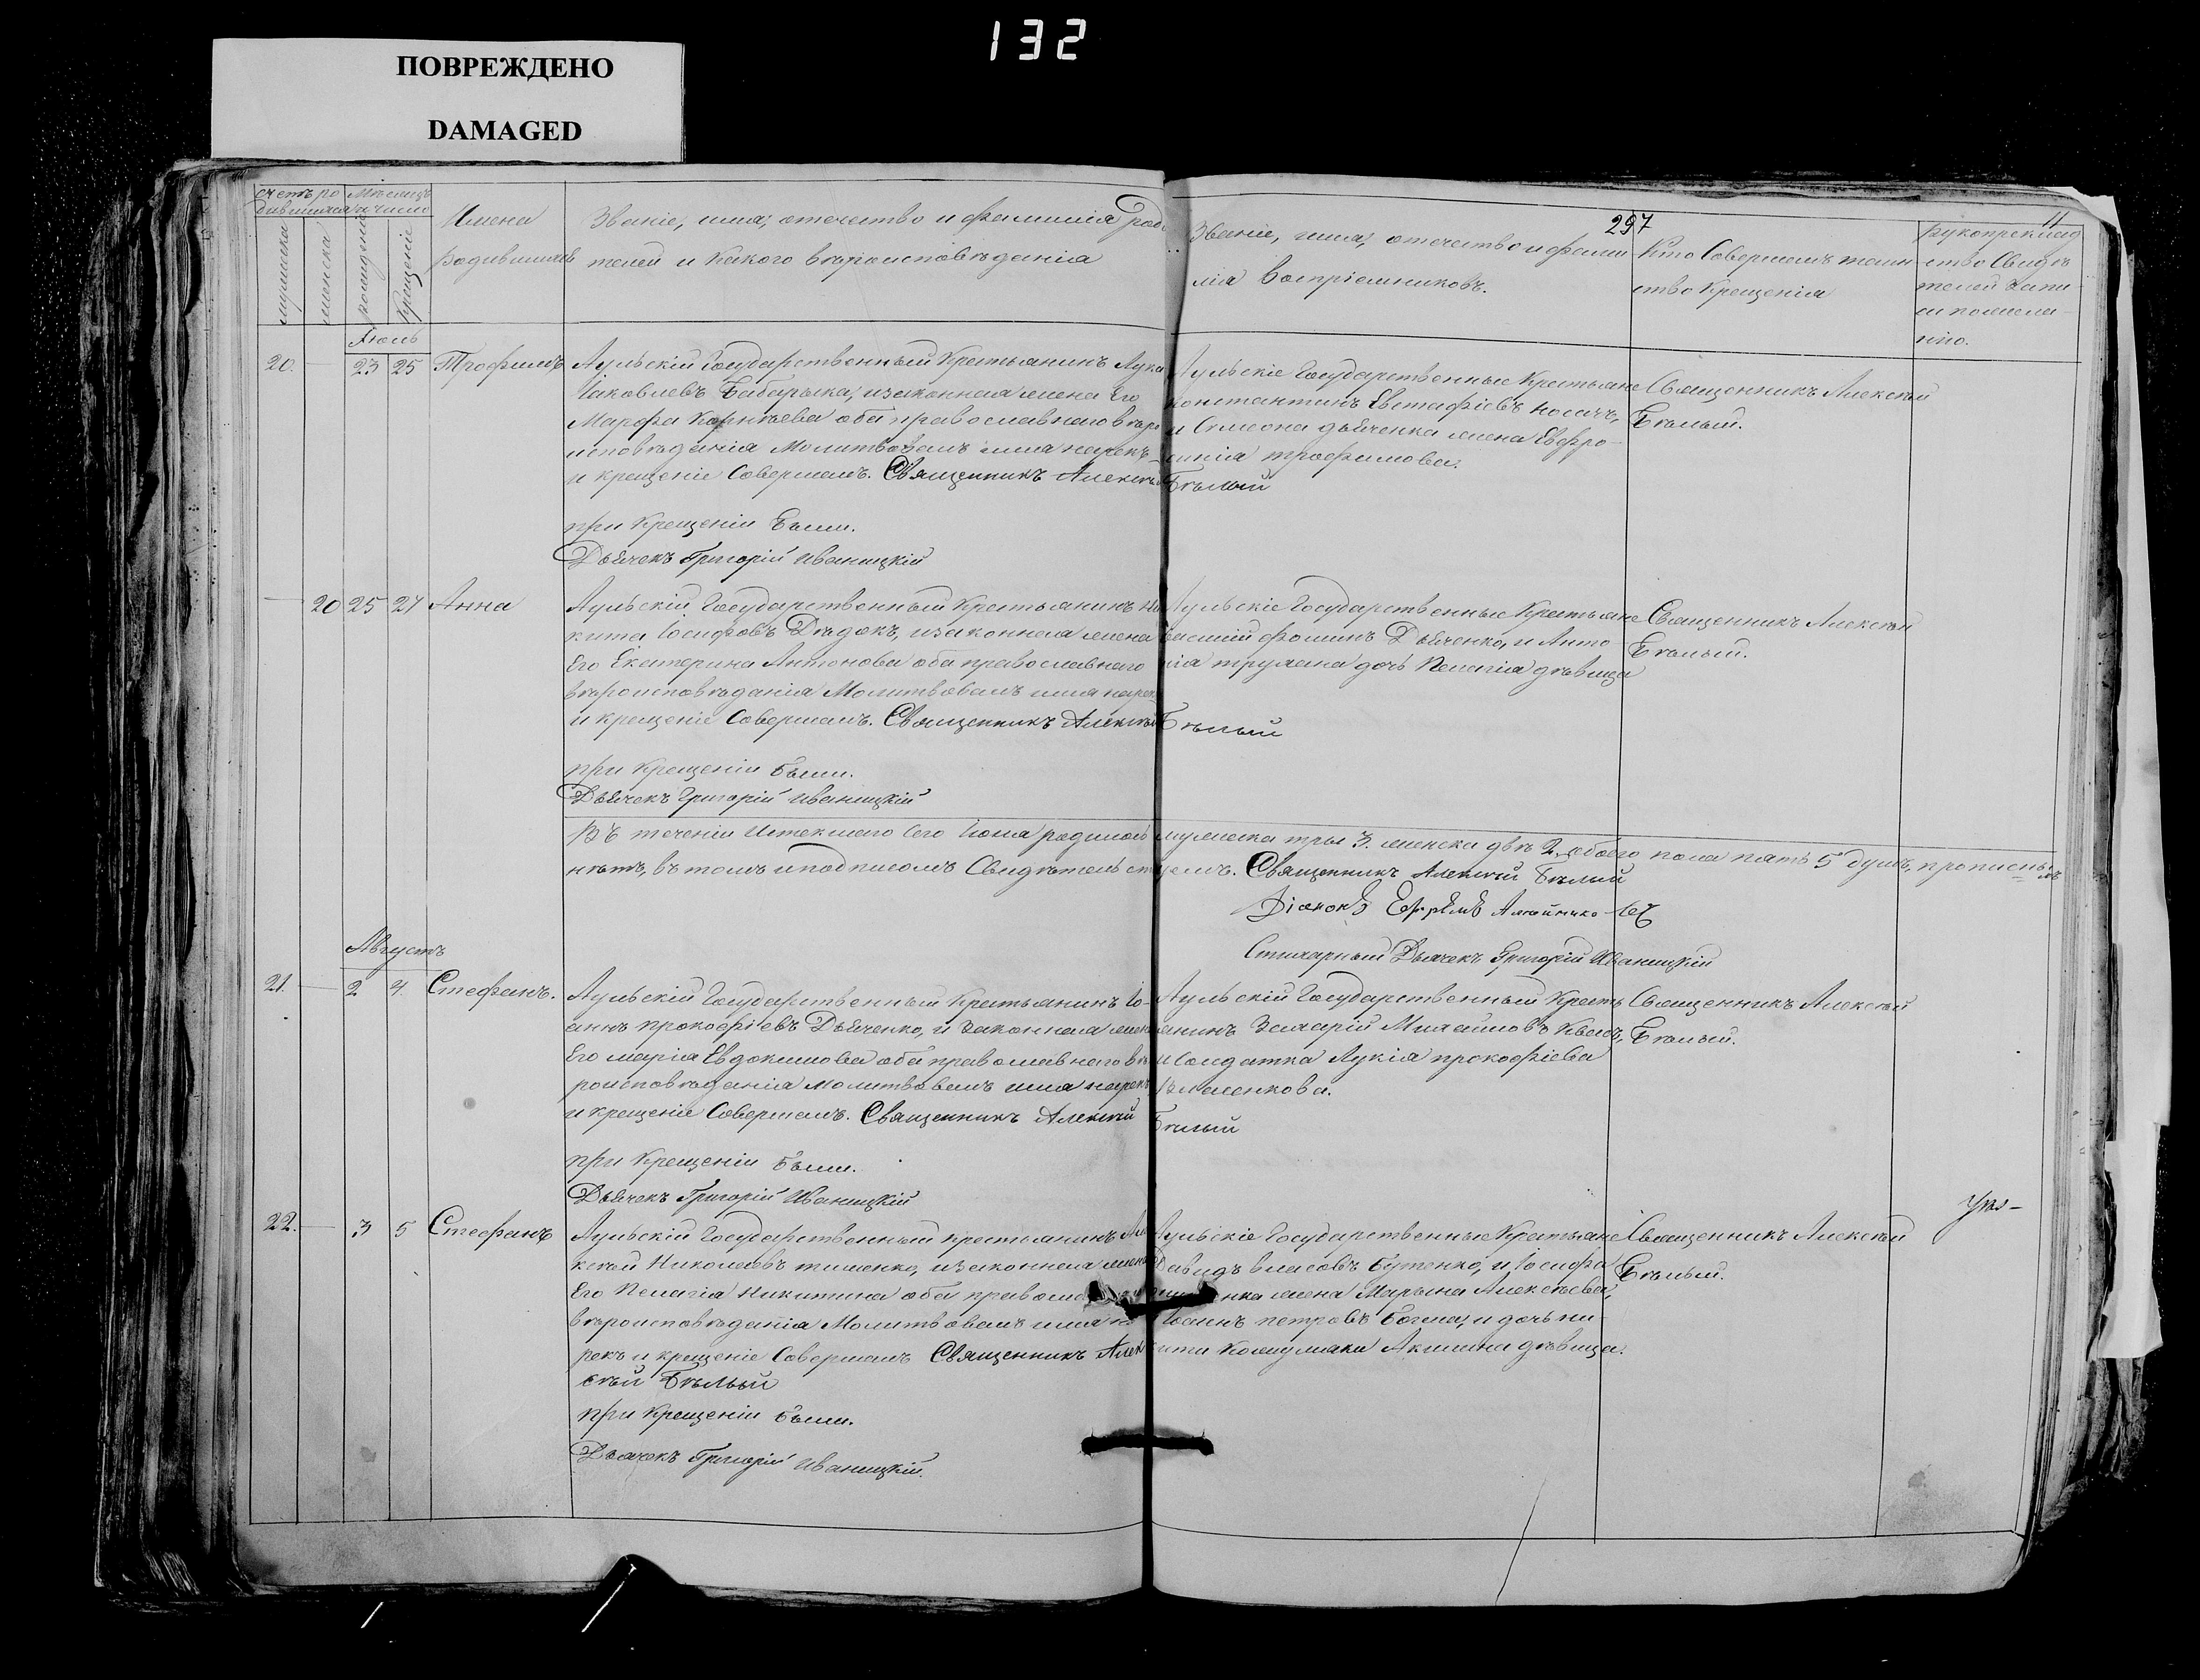 132
ПОВРЕЖДЕНО
DAMAGED
297
11
счетъ ро
дившихся
Мѣсяцъ
и число
мужеска
женска
рожденія
крещеніе
Имена
родившихся
Званіе, имя, отечество и фамилія роди
телей и какого вѣроисповѣданія
Званіе, имя, отечество и фами
лія воспріемниковъ.
Кто совершалъ таин
ство крещенія
Рукоприклад
ство свидѣ
телей записи
по желанію.
Іюль
20. 23 25 Трофимъ
Аульскій Государственный Крестьянинъ Лука
Іаковлевъ Бабарыка, и законная жена Его
Марфа Корнѣева оба православнаго вѣро
исповѣданія Молитвовалъ имя нарекъ
и крещеніе Совершалъ. Священникъ Алексѣй Бѣлый
при Крещеніи были.
Дьячекъ Григорій Иваницкій
Аульскіе Государственные Крестьяне
Константинъ Евстафіевъ Носачъ,
и Симеона Дьяченка жена Евфро
синія Трофимова.
Священникъ Алексѣй
Бѣлый.
20 25 27 Анна
Аульскій Государственный Крестьянинъ Ни
кита Іосифовъ Дѣдокъ, и законная жена
Его Екатерина Антонова оба православнаго
вѣроисповѣданія Молитвовалъ имя нарекъ
и крещеніе Совершалъ. Священникъ Алексѣй Бѣлый
при Крещеніи были.
Дьячекъ Григорій Иваницкій
Аульскіе Государственные Крестьяне
Василій Фоминъ Дьяченко, и Анто
нія дочь Пелагія дѣвица
Священникъ Алексѣй
Бѣлый.
Въ теченіи истекшаго сего Іюля родилось мужеска три 3. женска двѣ 2. обоего пола пять 5 душъ, прописныхъ
нѣтъ, въ томъ и подписомъ Свидѣтельствуемъ. Священникъ Алексѣй Бѣлый
Діаконъ Ефремъ
Стихарный Дьячекъ Григорій Иваницкій
Августъ
21. 2 4. Стефанъ.
Аульскій Государственный Крестьянинъ Іо-
аннъ Прокофіевъ Дьяченко, и законная жена
Его Марія Евдокимова оба православнаго вѣ
роисповѣданія Молитвовалъ имя нарекъ
и крещеніе Совершалъ. Священникъ Алексѣй Бѣлый
при Крещеніи были.
Дьячекъ Григорій Иваницкій
Аульскій Государственный Кресть
янинъ Михайловъ
и Солдатка Лукія Прокофіева
Священникъ Алексѣй
Бѣлый.
22. 3 5 Стефанъ
Аульскій Государственный Крестьянинъ Але
ксѣй Николаевъ Тименко, и законная жена
Его Пелагія Никитина оба
вѣроисповѣданія Молитвовалъ имя на
рекъ и крещеніе Совершалъ Священникъ Алек
сѣй Бѣлый
при Крещеніи были.
Дьячекъ Григорій Иваницкій.
Аульскіе Государственные Крестьяне
Давидъ Власовъ Бутенко, и Іосифа
жена Марьяна Алексѣева,
Іоаннъ Петровъ и дочь Ни
киты Акилина дѣвица.
Священникъ Алексѣй
Бѣлый.